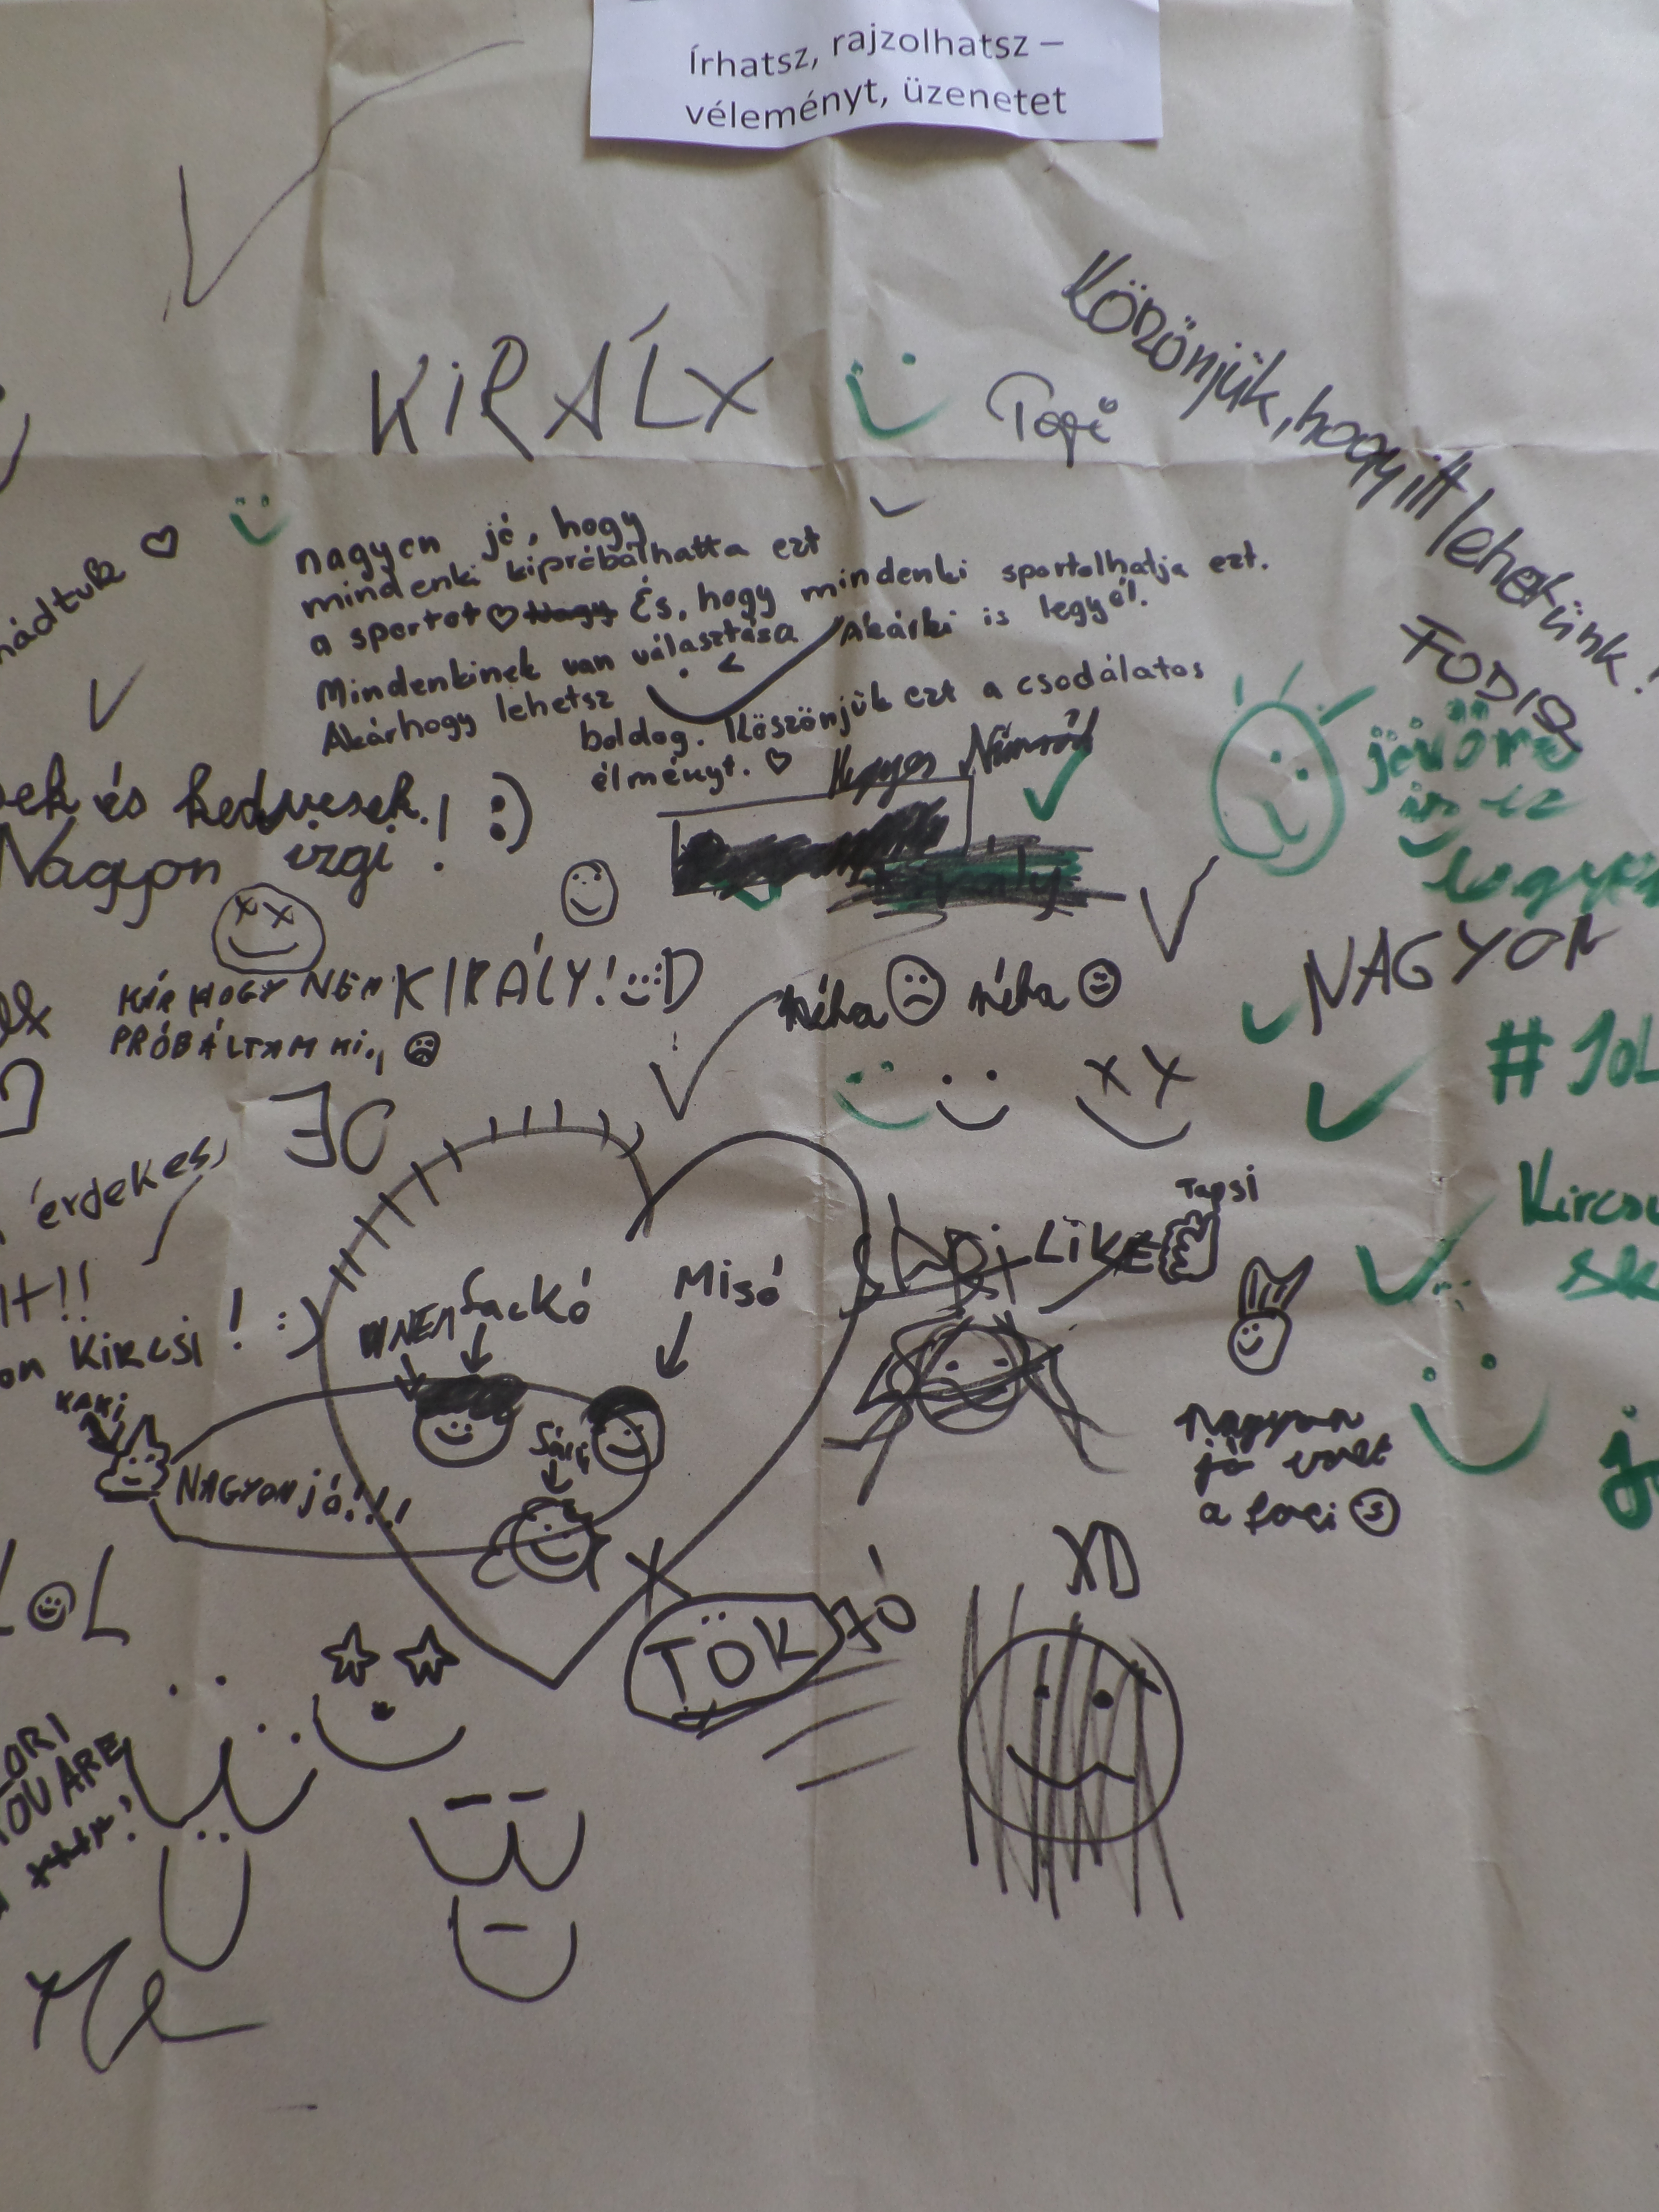 Írhatsz, rajzolhatsz –
véleményt, üzenetet
KiRÁLY
Topi
Közönjük, hogy itt lehetünk!
FODIQ
nagyon jó, hogy
mindenki kipróbálhatta ezt
a sportot És, hogy mindenki sportolhatja ezt.
Mindenkinek van választása Akárki is legyél.
Akárhogy lehetsz
boldog. Köszönjük ezt a csodálatos
élményt.
jövőre
is ez
legyen
és kedvesek! :)
Nagyon izgi!
király
KÁR HOGY NEM
PRÓBÁLTAM KI.,
KIRÁLY! :D
néha néha
NAGYON
#JOL
érdekes,
!!
Kircsi! :)
KAKI
NAGYON jó!!!
NEM Sackó
Misó
Sári
LIKE
Tapsi
nagyon
jó volt
a foci
XD
LOL
TÖK JÓ